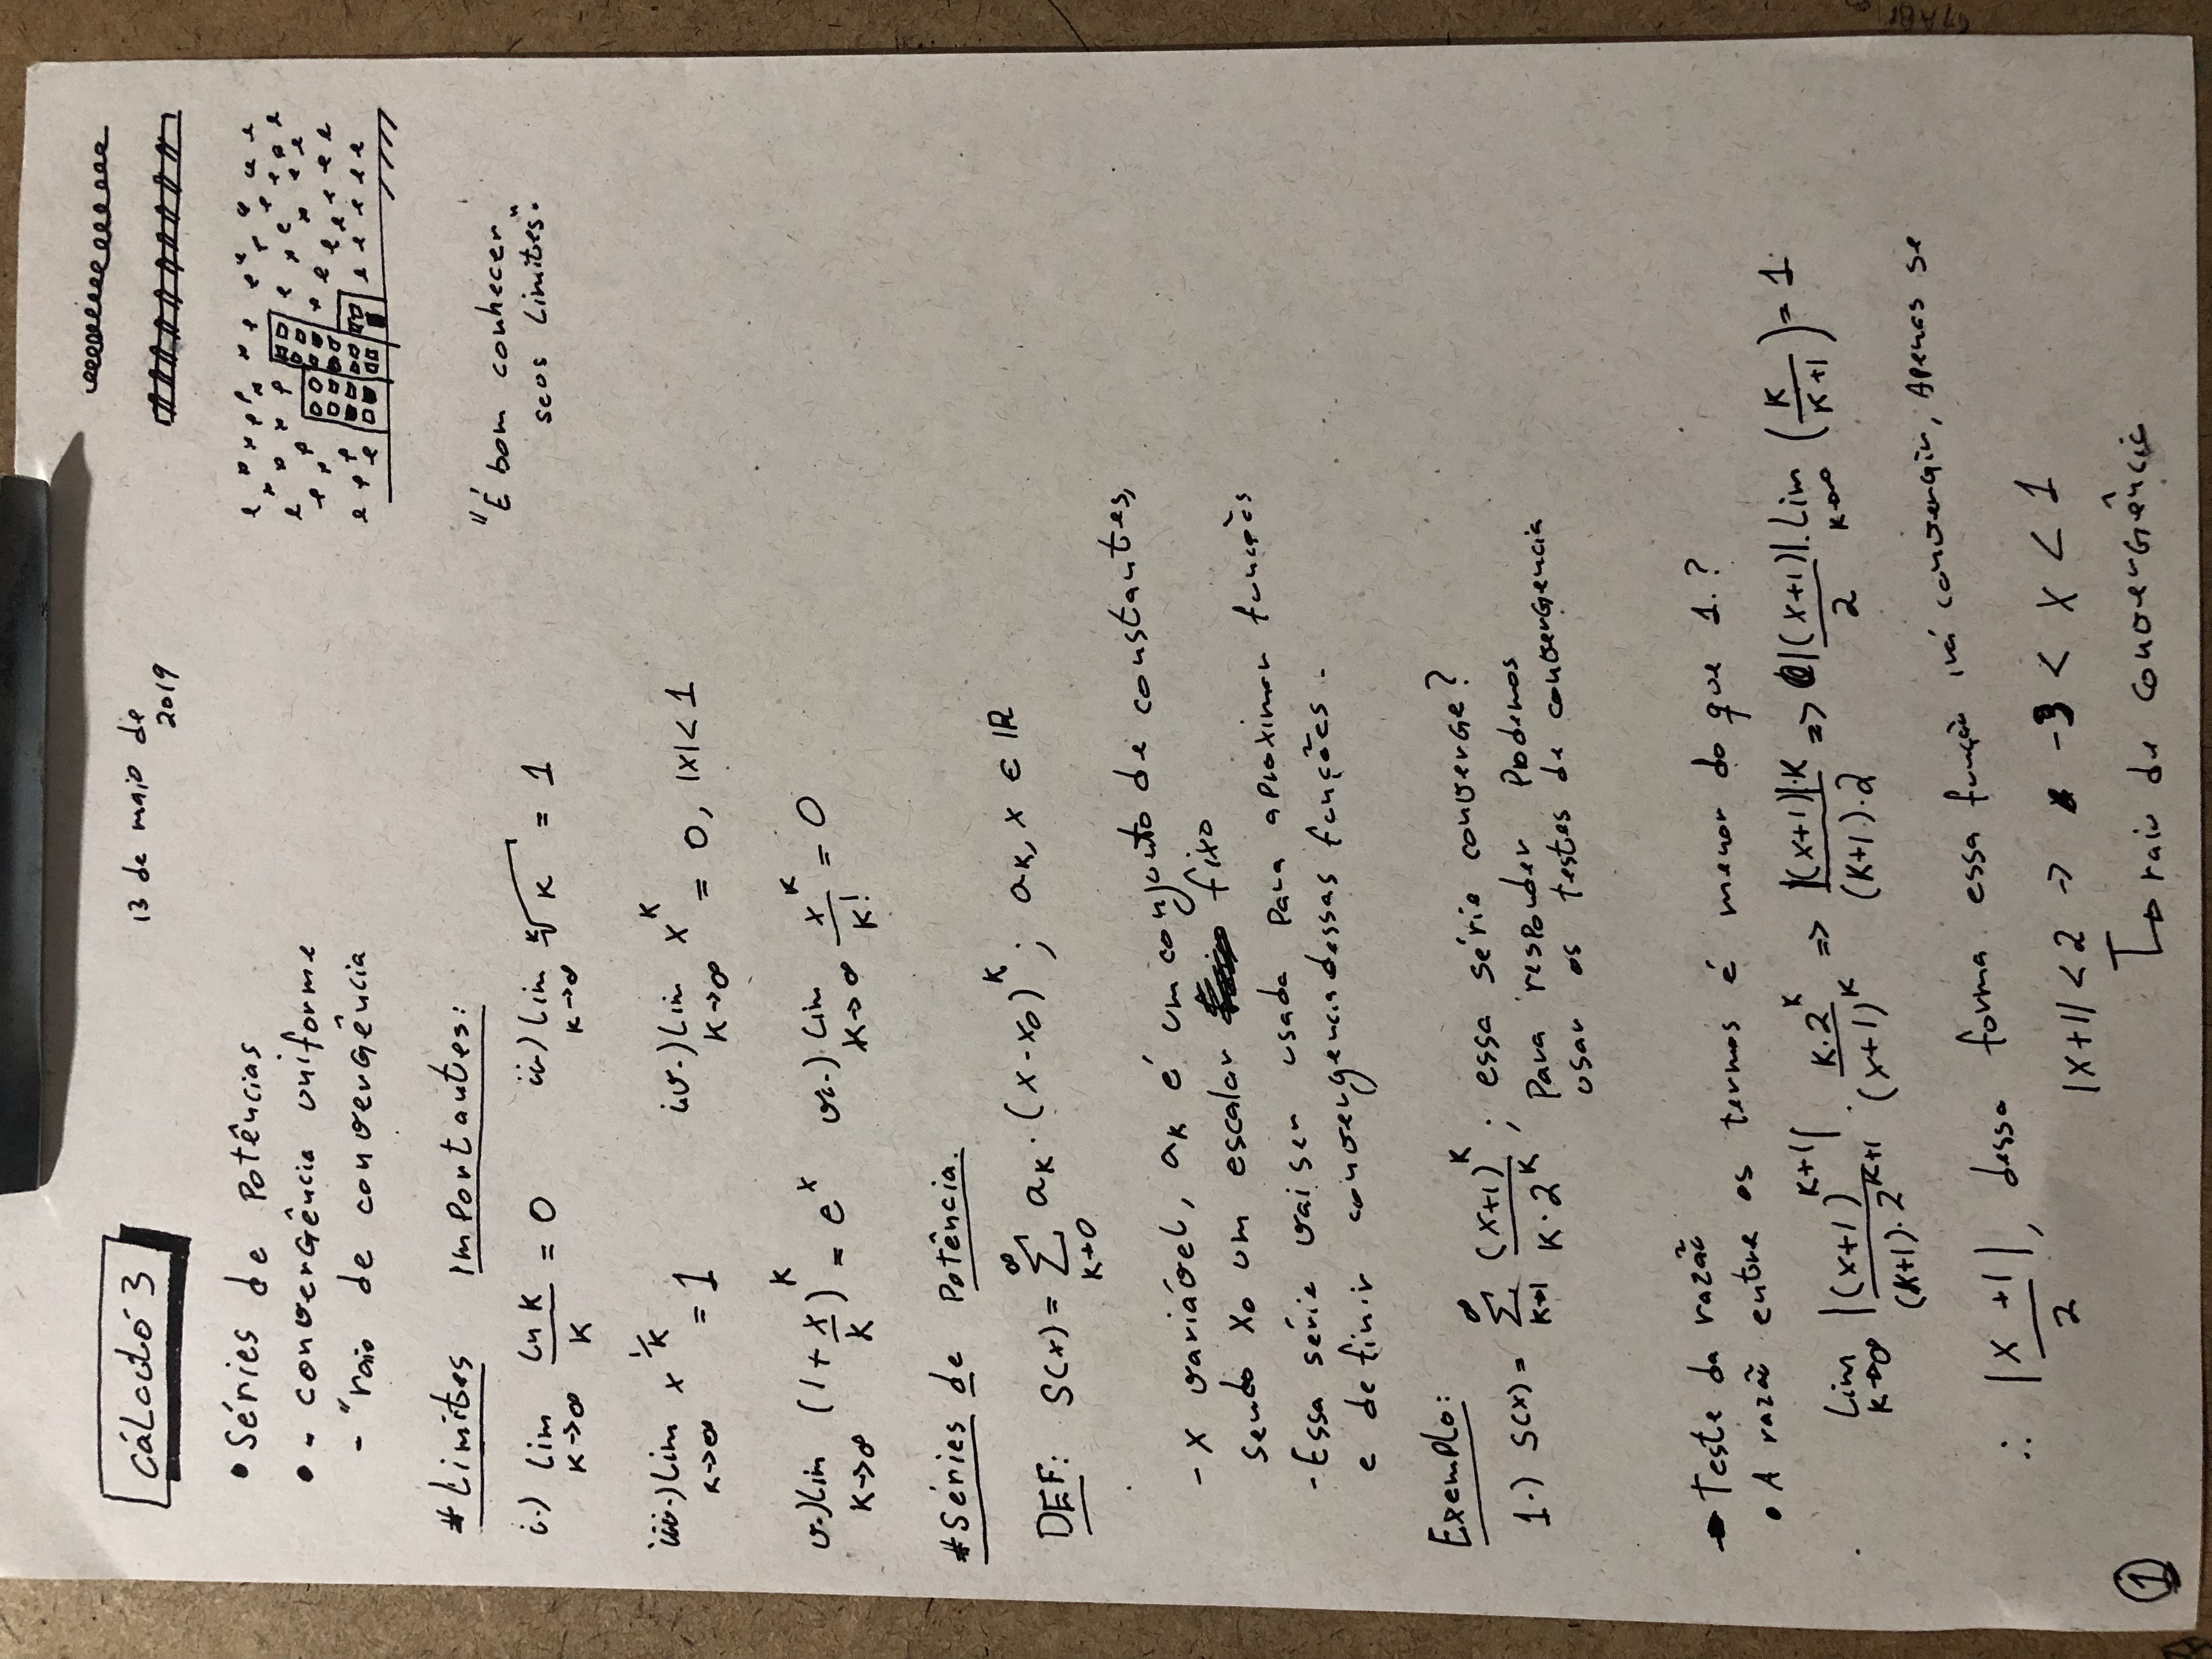 CÁLCULO 3
13 de maio de
2019
• Séries de Potências
• - convergência uniforme
- "raio de convergência
# Limites Importantes:
"É bom conhecer
seus Limites".
i.) lim k→∞ ln k / k = 0
ii.) lim k→∞ ᵏ√k = 1
iii.) lim k→∞ x^(1/k) = 1
iv.) lim k→∞ x^k = 0, |x| < 1
v.) lim k→∞ (1 + x/k)^k = e^x
vi.) lim k→∞ x^k / k! = 0
# Séries de Potência.
DEF: S(x) = ∑ k→0 ∞ a_k · (x - x₀)^k ; a_k, x ∈ ℝ
- x variável, a_k é um conjunto de constantes,
sendo x₀ um escalar fixo
- Essa série vai ser usada para aproximar funções
e definir convergencia dessas funções.
Exemplo:
1.) S(x) = ∑ k→1 ∞ (x+1)^k / k · 2^k ; essa série converge?
Para responder Podemos
usar os testes de convergencia
→ Teste da razão
• A razão entre os termos é menor do que 1.?
lim k→∞ |(x+1)^(k+1)| / (k+1) · 2^(k+1) · k · 2^k / (x+1)^k => |(x+1)| · k / (k+1) · 2 => |(x+1)| / 2 · lim k→∞ (k / k+1) = 1
∴ |x +1| / 2, dessa forma essa função irá convergir, Apenas se
|x+1| < 2 → -3 < x < 1
↳ raio de convergência
1